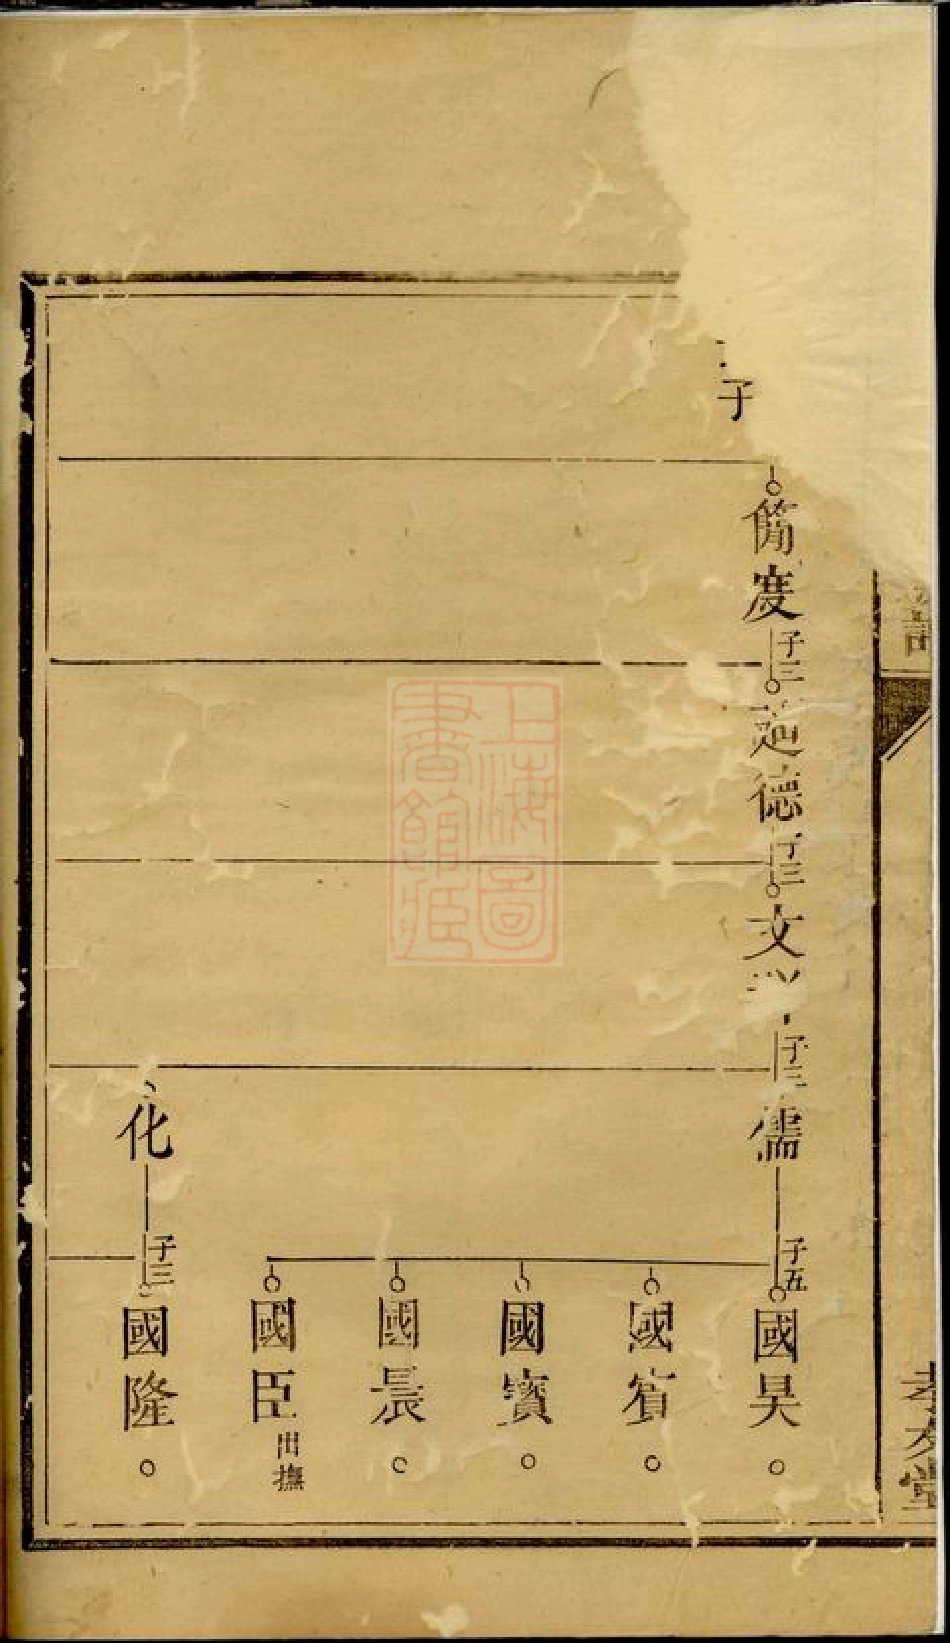 子
備度
子三
德
子三
文
子三
儒
子五
國昊
國賓
國寶
國晨
國臣
出撫
化
子三
國隆
譜
上海圖
書館藏